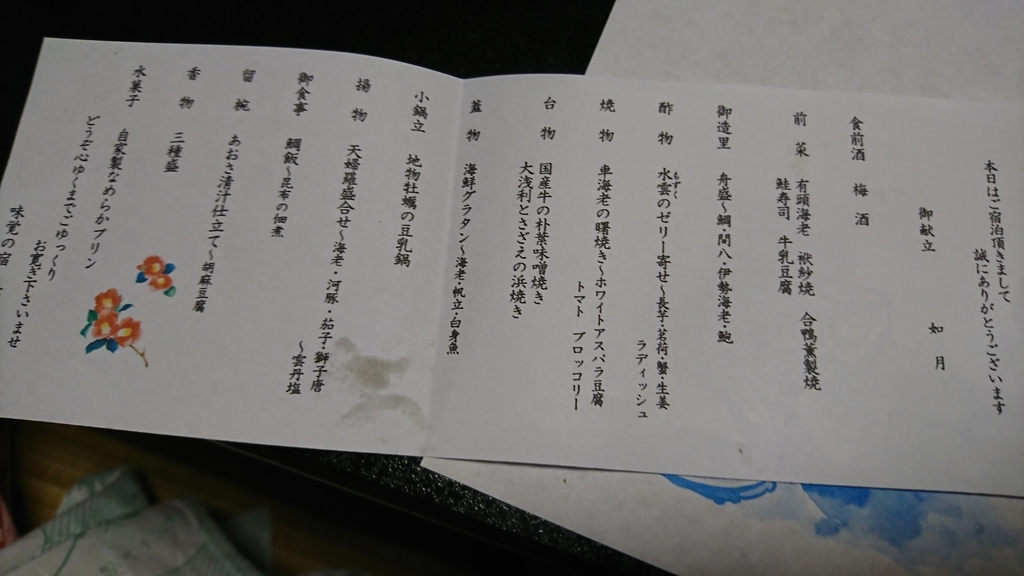 本日はご宿泊頂きまして
誠にありがとうございます
御献立 如月
食前酒 梅酒
前菜 有頭海老 袱紗焼 合鴨薫製焼
鮭寿司 牛乳豆腐
御造里 舟盛〜鯛・間八・伊勢海老・鮑
酢物 水雲のゼリー寄せ〜長芋・茗荷・蟹・生姜
もずく
ラディッシュ
焼物 車海老の曙焼き〜ホワイトアスパラ豆腐
トマト ブロッコリー
台物 国産牛の朴葉味噌焼き
大浅利とさざえの浜焼き
蓋物 海鮮グラタン〜海老・帆立・白身魚
小鍋立 地物牡蠣の豆乳鍋
揚物 天婦羅盛合せ〜海老・河豚・茄子・獅子唐
〜雲丹塩
御食事 鯛飯〜昆布の佃煮
留椀 あおさ清汁仕立て〜胡麻豆腐
香物 三種盛
水菓子 自家製なめらかプリン
どうぞ心ゆくまでごゆっくり
お寛ぎ下さいませ
味覚の宿